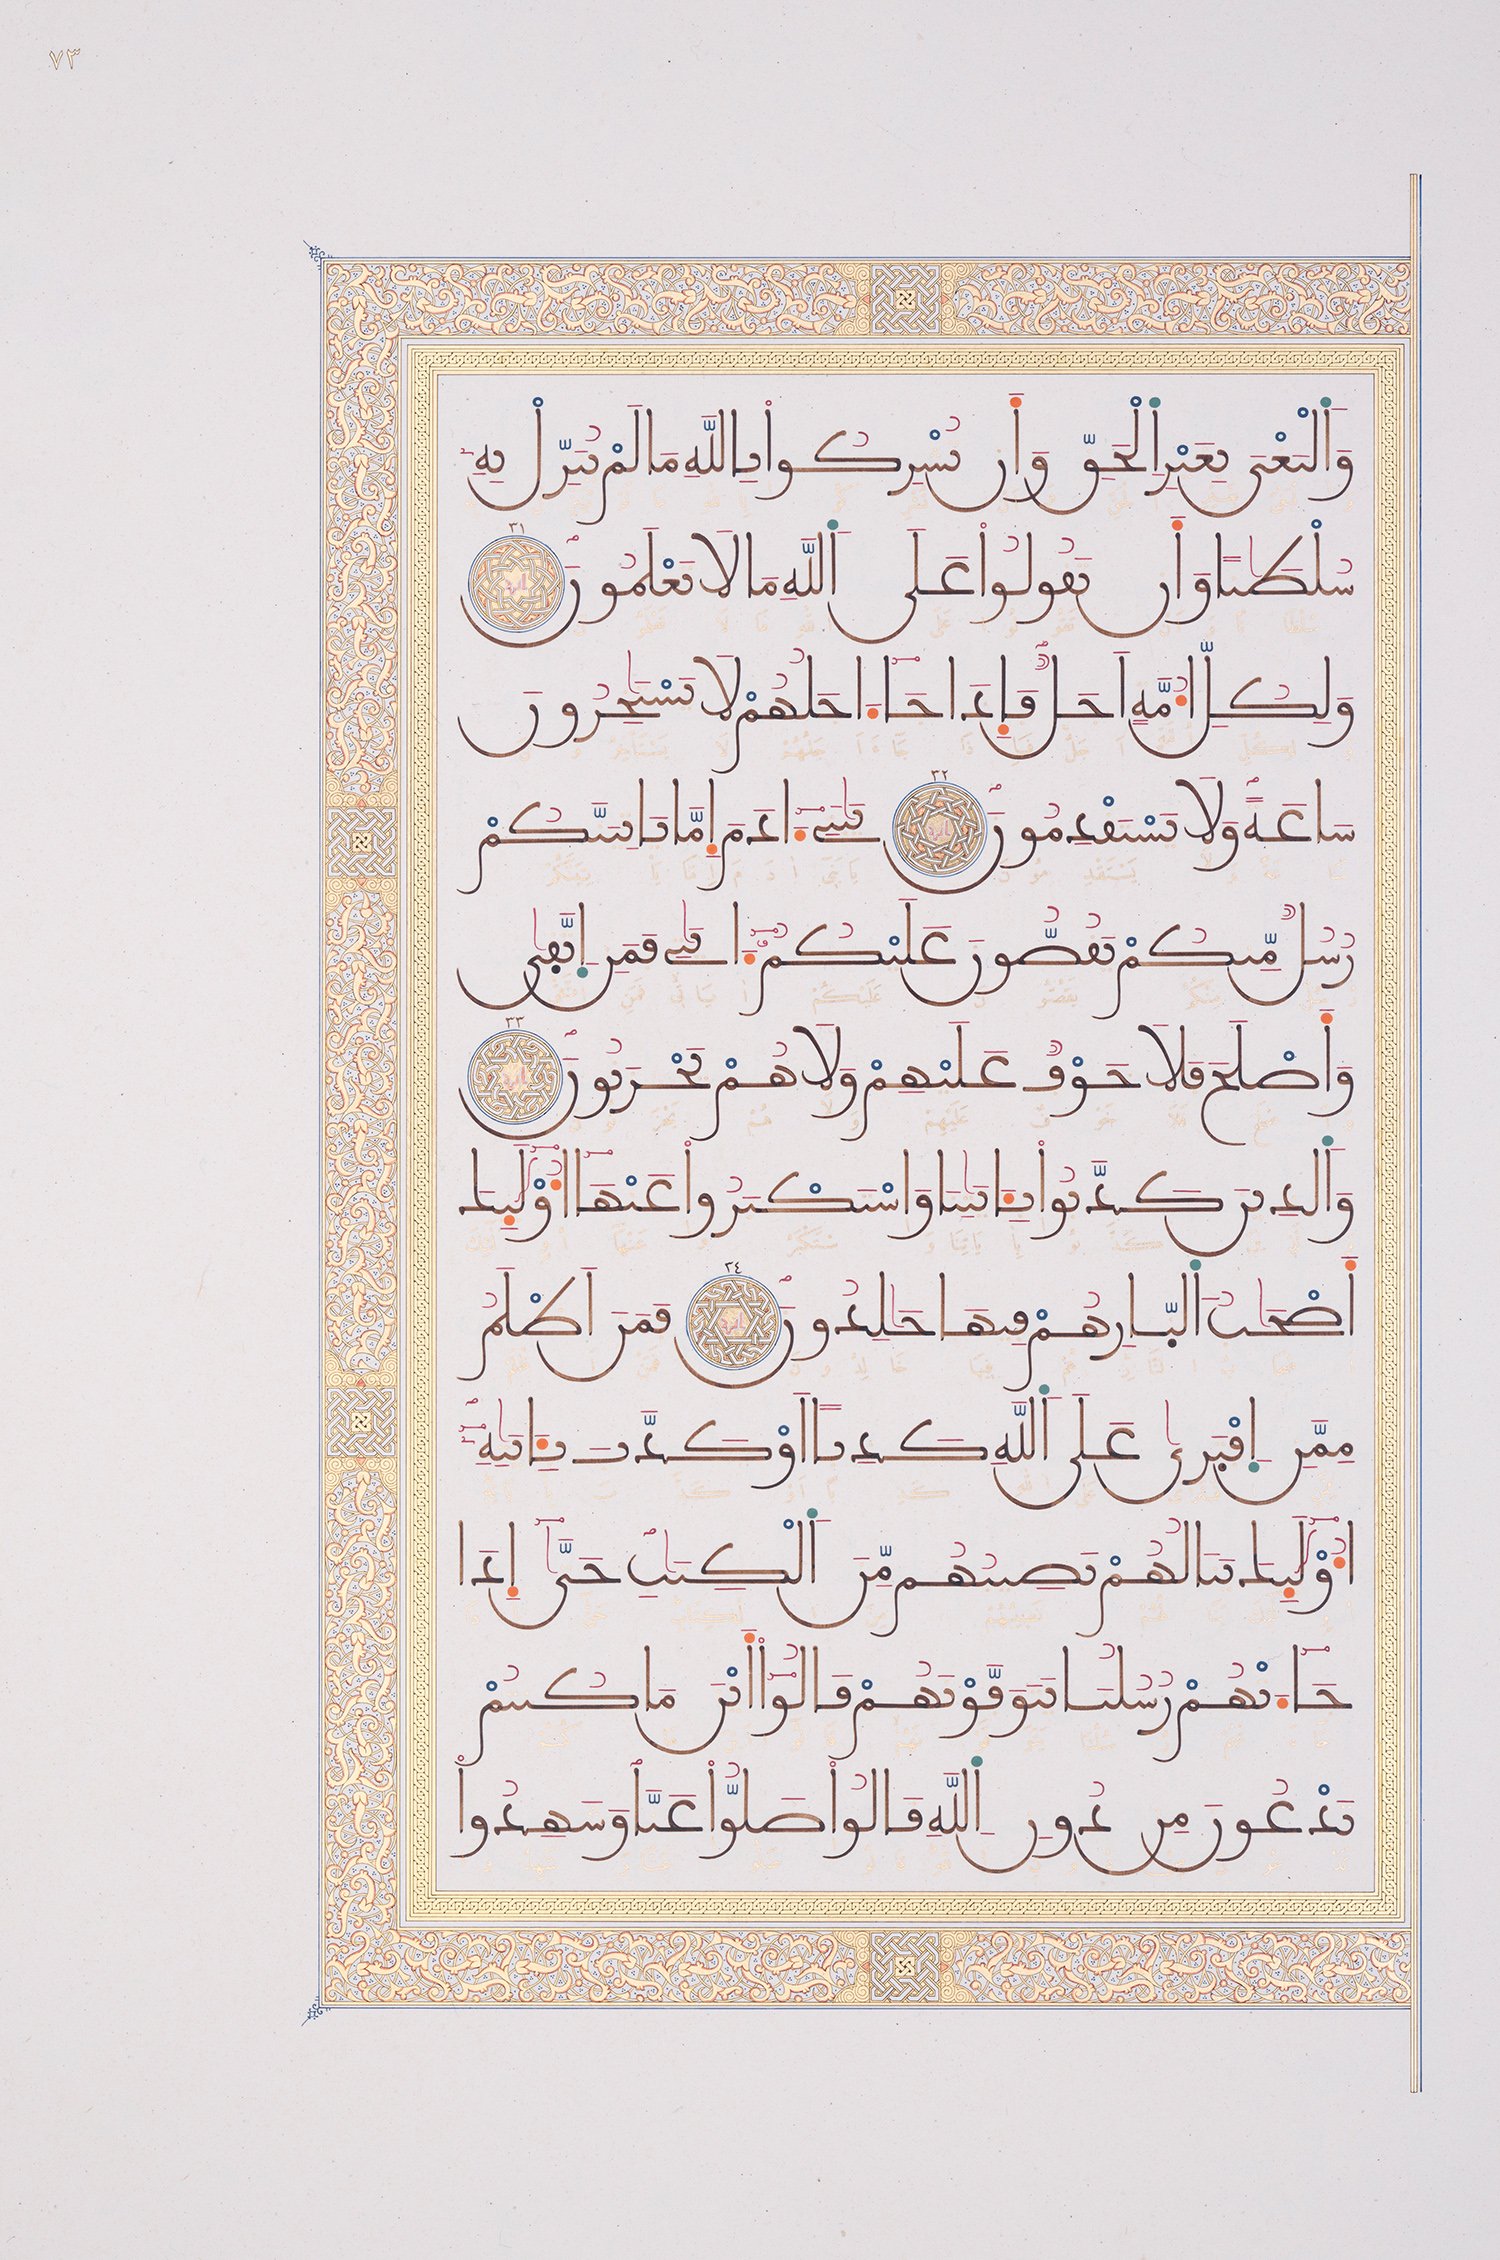 ٧٣
وَالْبَغْيَ بِغَيْرِ الْحَقِّ وَأَن تُشْرِكُوا بِاللَّهِ مَا لَمْ يُنَزِّلْ بِهِ
سُلْطَٰنًا وَأَن تَقُولُوا عَلَى اللَّهِ مَا لَا تَعْلَمُونَ ٣١
وَلِكُلِّ أُمَّةٍ أَجَلٌ فَإِذَا جَاءَ اجَلُهُمْ لَا يَسْتَٰخِرُونَ
سَاعَةً وَلَا يَسْتَقْدِمُونَ ٣٢ يَٰبَنِي ءَادَمَ إِمَّا يَاتِيَنَّكُمْ
رُسُلٌ مِّنكُمْ يَقُصُّونَ عَلَيْكُمُ ءَايَٰتِي فَمَنِ اتَّقَىٰ
وَأَصْلَحَ فَلَا خَوْفٌ عَلَيْهِمْ وَلَا هُمْ يَحْزَنُونَ ٣٣
وَالَّذِينَ كَذَّبُوا بِـَٔايَٰتِنَا وَاسْتَكْبَرُوا عَنْهَا أُوْلَٰئِكَ
أَصْحَٰبُ النَّارِ هُمْ فِيهَا خَٰلِدُونَ ٣٤ فَمَنَ اَظْلَمُ
مِمَّنِ افْتَرَىٰ عَلَى اللَّهِ كَذِبًا اَوْ كَذَّبَ بِـَٔايَٰتِهِ
أُوْلَٰئِكَ يَنَالُهُمْ نَصِيبُهُم مِّنَ الْكِتَٰبِ حَتَّىٰ إِذَا
جَاءَتْهُمْ رُسُلُنَا يَتَوَفَّوْنَهُمْ قَالُوا أَيْنَ مَا كُنتُمْ
تَدْعُونَ مِن دُونِ اللَّهِ قَالُوا ضَلُّوا عَنَّا وَشَهِدُوا